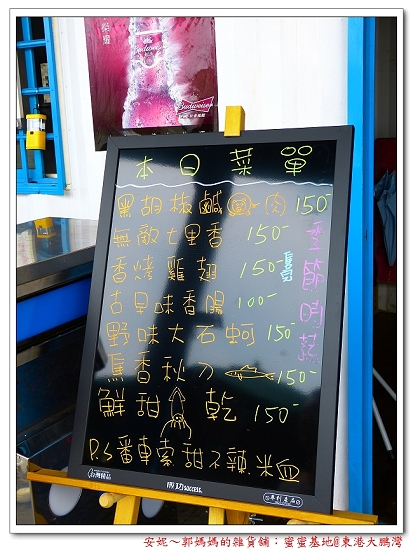 榮耀
Budweiser
Budweiser
本日菜單
黑胡椒鹹肉 150-
無敵七里香 150-
香烤雞翅 150-
古早味香腸 100-
野味大石蚵 150-
馬香秋刀 150-
鮮甜乾 150-
P.S 番車索 甜不辣 米血
季節時蔬
台灣精品
success.
安妮～郭媽媽的雜貨舖：蜜蜜基地@東港大鵬灣